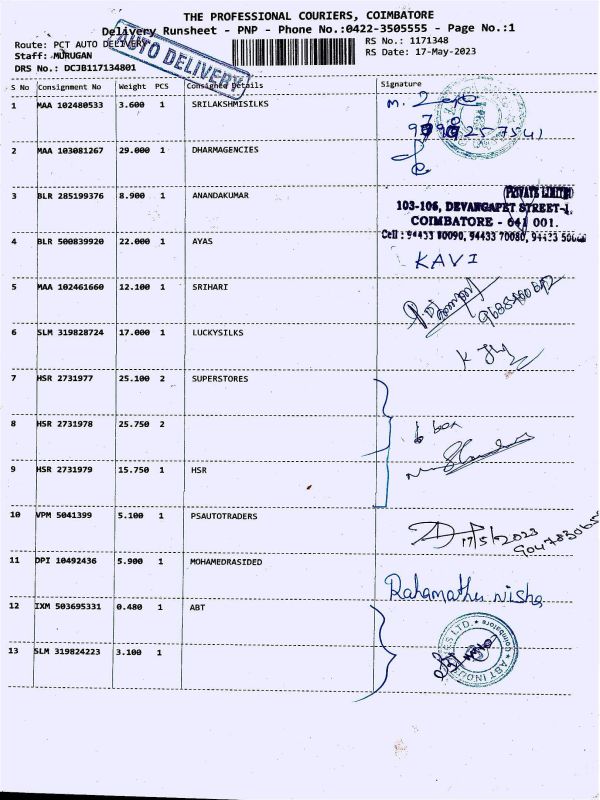 THE PROFESSIONAL COURIERS, COIMBATORE
Delivery Runsheet - PNP - Phone No.:0422-3505555 - Page No.:1
Route: PCT AUTO DELIVERY
RS No.: 1171348
Staff: MURUGAN
RS Date: 17-May-2023
DRS No.: DCJB117134801
AUTO DELIVERY
S No Consignment No Weight PCS Consignee Details Signature
1 MAA 102480533 3.600 1 SRILAKSHMISILKS
2 MAA 103081267 29.000 1 DHARMAGENCIES
3 BLR 285199376 8.900 1 ANANDAKUMAR
PRIVATE LIMITED
103-106, DEVANGAPET STREET-1,
COIMBATORE - 641 001.
Cell : 94433 80090, 94433 70080,
4 BLR 500839920 22.000 1 AYAS
KAVI
5 MAA 102461660 12.100 1 SRIHARI
6 SLM 319828724 17.000 1 LUCKYSILKS
7 HSR 2731977 25.100 2 SUPERSTORES
8 HSR 2731978 25.750 2
6 box
9 HSR 2731979 15.750 1 HSR
10 VPM 5041399 5.100 1 PSAUTOTRADERS
17/5/2023
11 DPI 10492436 5.900 1 MOHAMEDRASIDED
Rahamathu nisha
12 IXM 503695331 0.480 1 ABT
13 SLM 319824223 3.100 1